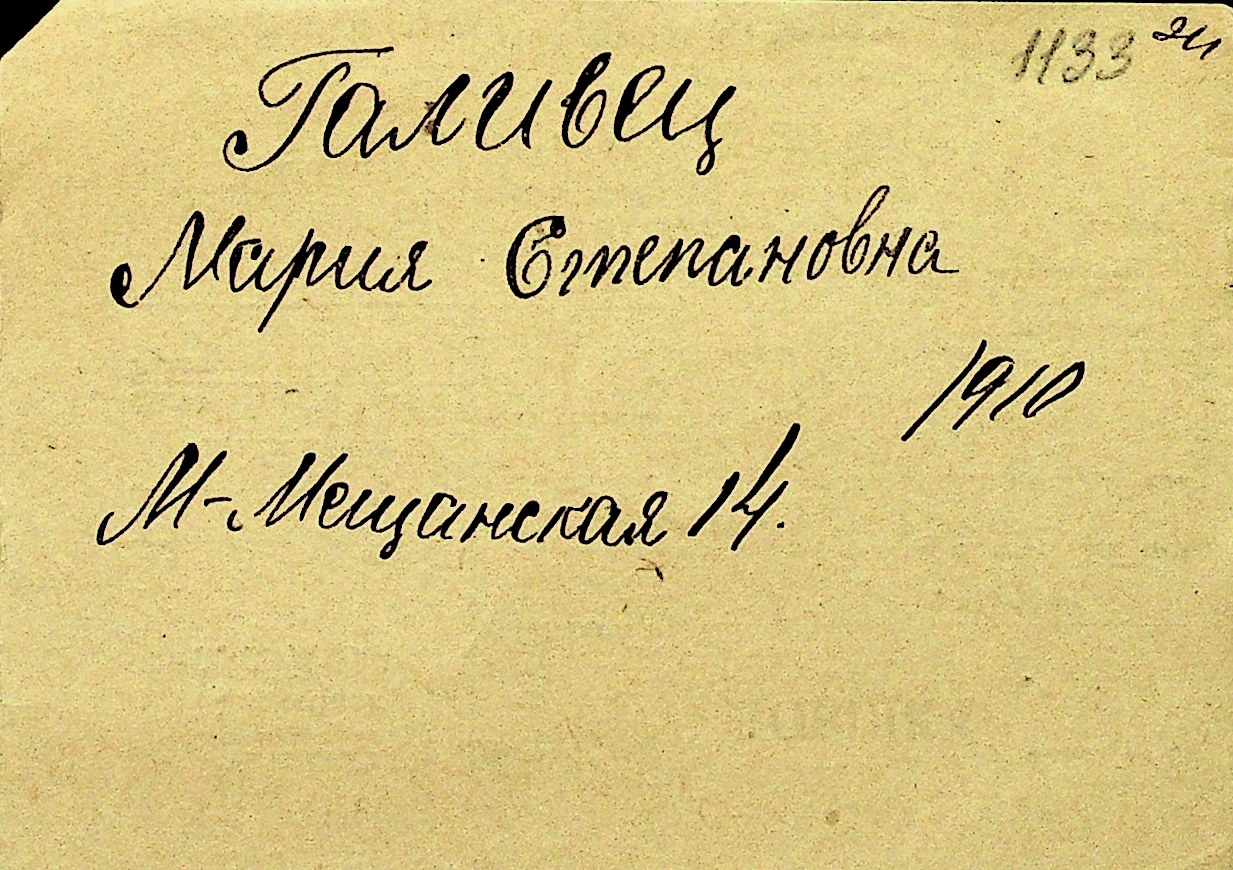 1133
Галивец
Мария Степановна
1910
М-Мещанская 14.